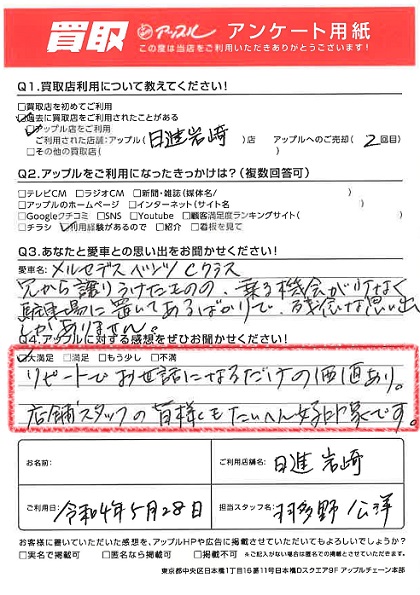 買取 アップル アンケート用紙
この度は当店をご利用いただきありがとうございます!
Q1.買取店利用について教えてください!
□買取店を初めてご利用
☑過去に買取店をご利用されたことがある
☑アップル店をご利用
ご利用された店舗:アップル(日進岩崎)店 アップルへのご売却(2回目)
□その他の買取店( )
Q2.アップルをご利用になったきっかけは?(複数回答可)
□テレビCM □ラジオCM □新聞・雑誌(媒体名/ )
□アップルのホームページ □インターネット(サイト名 )
□Googleクチコミ □SNS □Youtube □顧客満足度ランキングサイト( )
□チラシ ☑利用経験があるので □紹介 □看板を見て
Q3.あなたと愛車との思い出をお聞かせください!
愛車名:メルセデスベンツ Cクラス
兄から譲りうけたものの、乗る機会が少なく
駐車場に置いてあるばかりで、残念な思い出
しかありません。
Q4.アップルに対する感想をぜひお聞かせください!
☑大満足 □満足 □もう少し □不満
リピートでお世話になるだけの価値あり。
店舗スタッフの皆様もたいへん好印象です。
お名前:
ご利用店舗名:日進岩崎
ご利用日:令和4年5月28日
担当スタッフ名:羽多野 公洋
お客様に書いていただいた感想を、アップルHPや広告に掲載させていただいてもよろしいでしょうか?
□実名で掲載可 □匿名なら掲載可 □掲載不可 ※ご記入がない場合は匿名での掲載とさせていただきます。
東京都中央区日本橋1丁目16番11号日本橋Dスクエア9F アップルチェーン本部